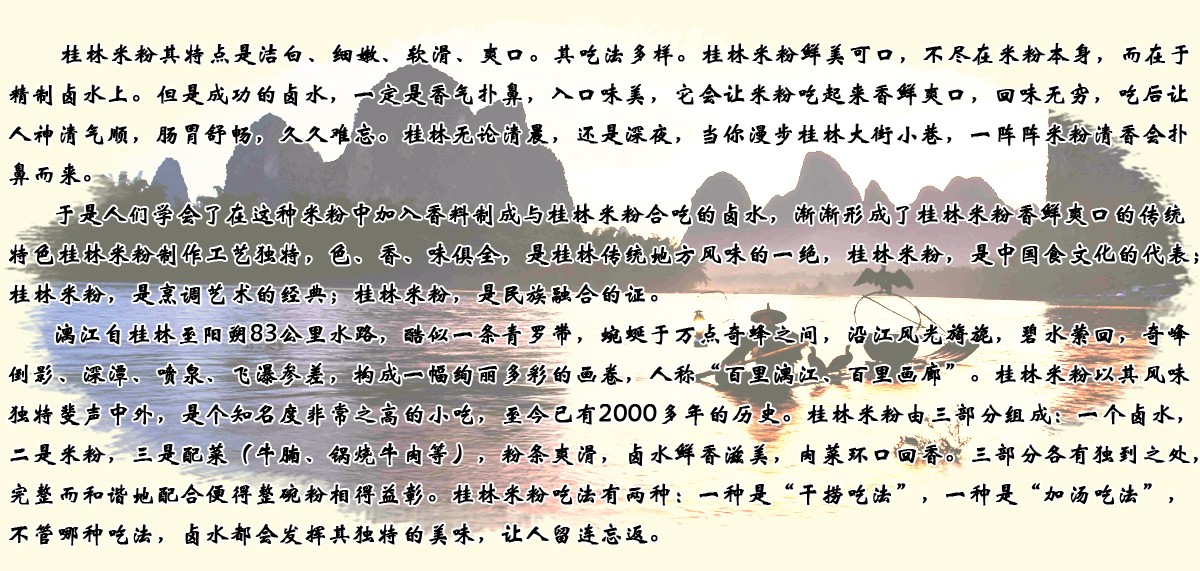 桂林米粉其特点是洁白、细嫩、软滑、爽口。其吃法多样。桂林米粉鲜美可口，不尽在米粉本身，而在于
精制卤水上。但是成功的卤水，一定是香气扑鼻，入口味美，它会让米粉吃起来香鲜爽口，回味无穷，吃后让
人神清气顺，肠胃舒畅，久久难忘。桂林无论清晨，还是深夜，当你漫步桂林大街小巷，一阵阵米粉清香会扑
鼻而来。
于是人们学会了在这种米粉中加入香料制成与桂林米粉合吃的卤水，渐渐形成了桂林米粉香鲜爽口的传统
特色桂林米粉制作工艺独特，色、香、味俱全，是桂林传统地方风味的一绝，桂林米粉，是中国食文化的代表；
桂林米粉，是烹调艺术的经典；桂林米粉，是民族融合的证。
漓江自桂林至阳朔83公里水路，酷似一条青罗带，蜿蜒于万点奇峰之间，沿江风光旖旎，碧水萦回，奇峰
倒影、深潭、喷泉、飞瀑参差，构成一幅绚丽多彩的画卷，人称“百里漓江、百里画廊”。桂林米粉以其风味
独特斐声中外，是个知名度非常之高的小吃，至今已有2000多年的历史。桂林米粉由三部分组成：一个卤水，
二是米粉，三是配菜（牛腩、锅烧牛肉等），粉条爽滑，卤水鲜香滋美，肉菜环口回香。三部分各有独到之处，
完整而和谐地配合便得整碗粉相得益彰。桂林米粉吃法有两种：一种是“干捞吃法”，一种是“加汤吃法”，
不管哪种吃法，卤水都会发挥其独特的美味，让人留连忘返。